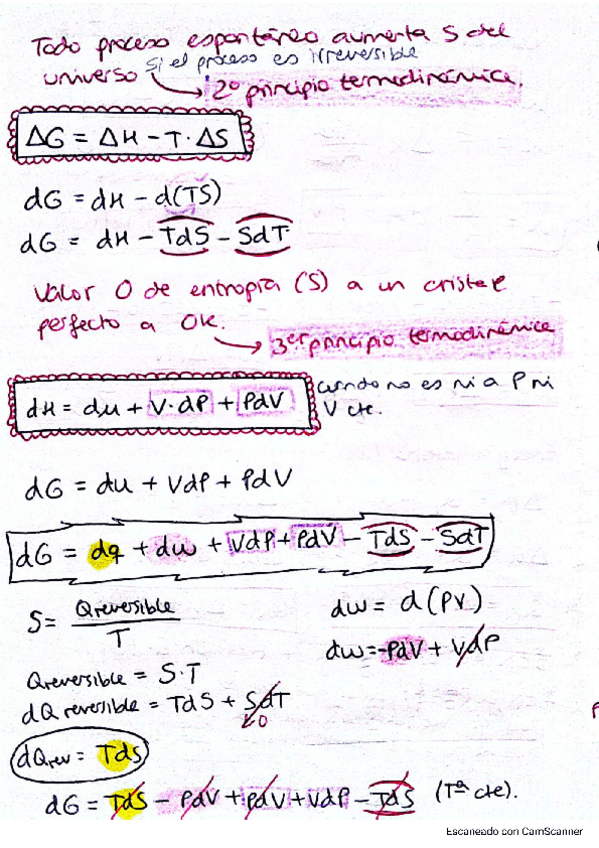 Todo proceso espontáneo aumenta S del
universo si el proceso es irreversible
→ 2º principio termodinámica.
ΔG = ΔH - T · ΔS
dG = dH - d(TS)
dG = dH - TdS - SdT
Valor 0 de entropía (S) a un cristal
perfecto a 0K.
→ 3er principio termodinámica
dH = du + V·dP + PdV cuando no es ni a P ni
V cte.
dG = du + VdP + PdV
dG = dq + dw + VdP + PdV - TdS - SdT
S = Qreversible / T
dw = d(PV)
dw = -PdV + VdP
Qreversible = S·T
dQreversible = TdS + SdT
→0
dQrev = TdS
dG = TdS - PdV + PdV + VdP - TdS (Tª cte).
Escaneado con CamScanner